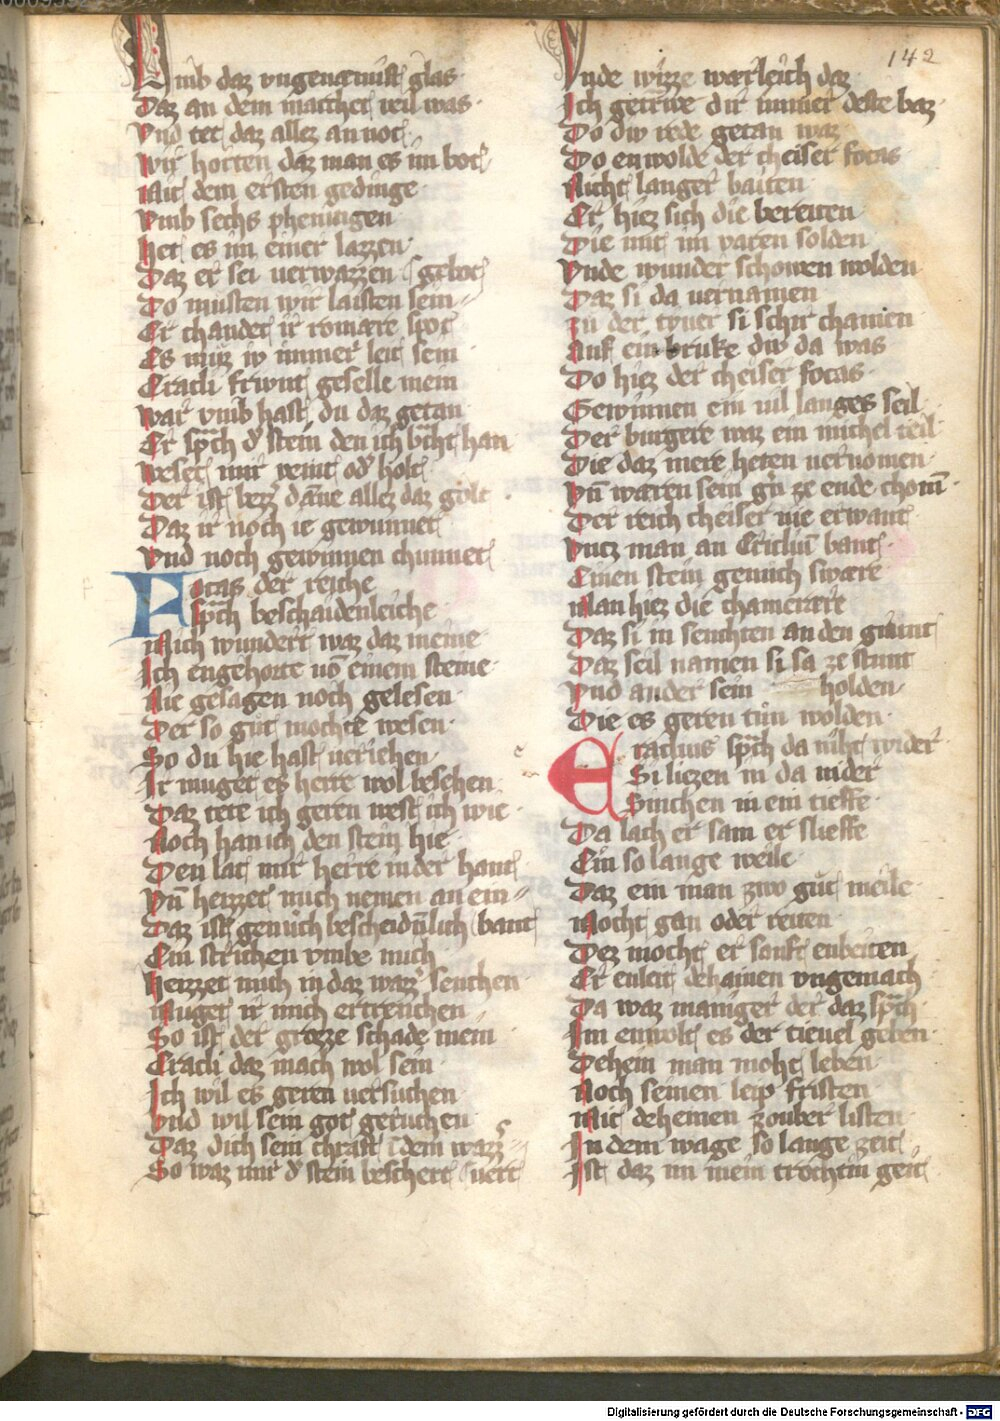 142
Umb daz ungenæmist glas
Daz an dem marcht veil was
Und tet daz allez an not
Wir horten daz man es im bot
Mit dem ersten gedinge
Umb sechs pheningen
Het es im einer lazzen
Daz er sei verwazzen gebot
Do musten wir laisten sein
Er chander ir romære spot
Es muz iv immer leit sein
Eracli frivnt geselle mein
War umb hast du daz getan
Er sprach der stein den ich bracht han
Weset mir veint oder holt
Der ist bezzer danne allez daz golt
Daz ir noch ie gewunnet
Und noch gewinnen chunnet
Focas der reiche
Sprach beschaidenleiche
Mich wundert waz daz meine
Ich engehorte von einem steine
Nie gesagen noch gelesen
Der so gut mochte wesen
So du hie hast veriehen
Ir muget es herre wol besehen
Daz tete ich geren west ich wie
Noch han ich den stein hie
Den lat mir herre in der hant
Und heizzet mich nemen an ein
Daz ist genuch bescheidenlich bant
Ein strichen umbe mich
Heizzet mich in daz wazzer senchen
Muget ir mich ertrenchen
So ist der grozze schade mein
Eracli daz mach wol sein
Ich wil es geren versuchen
Und wil sein got geruchen
Daz dich sein chraft in dem wazzer
So waz mir der stein beschert nert
Unde wizze warleich daz
Ich getriwe dir immer deste baz
Do div rede getan waz
Do enwolde der cheiser focas
Nicht langer baiten
Er hiez sich die bereiten
Die mit im varen solden
Unde wunder schowen wolden
Daz si da vernamen
Zu der tyver si schir chamen
Auf ein bruke div da was
Do hiez der cheiser focas
Gewinnen ein vil langes seil
Der burgere waz ein michel teil
Die daz mere heten vernomen
Und waren sein gern ze ende chomen
Der reich cheiser nie erwant
Untz man an Eraclium bant
Einen stein genuich swære
Man hiez die chamerære
Daz si in senchten an den grunt
Daz seil namen si sa ze stunt
Und ander sein holden
Die es geren tun wolden
Eraclius sprach da niht wider
Si liezen in da nider
Sinchen in ein tieffe
Da lach er sam er slieffe
Ein so lange weile
Daz ein man zwo gut meile
Mocht gan oder reiten
Dez mocht er sanft enbeiten
Er enleit dehainen ungemach
Da waz maniger der daz sprach
Im enwolt es der tievel geben
Dehein man moht leben
Noch seinen leip fristen
Mit deheinen zouber listen
In dem wage so lange zeit
Ist daz im mein trochtin geit
Digitalisierung gefördert durch die Deutsche Forschungsgemeinschaft - DFG